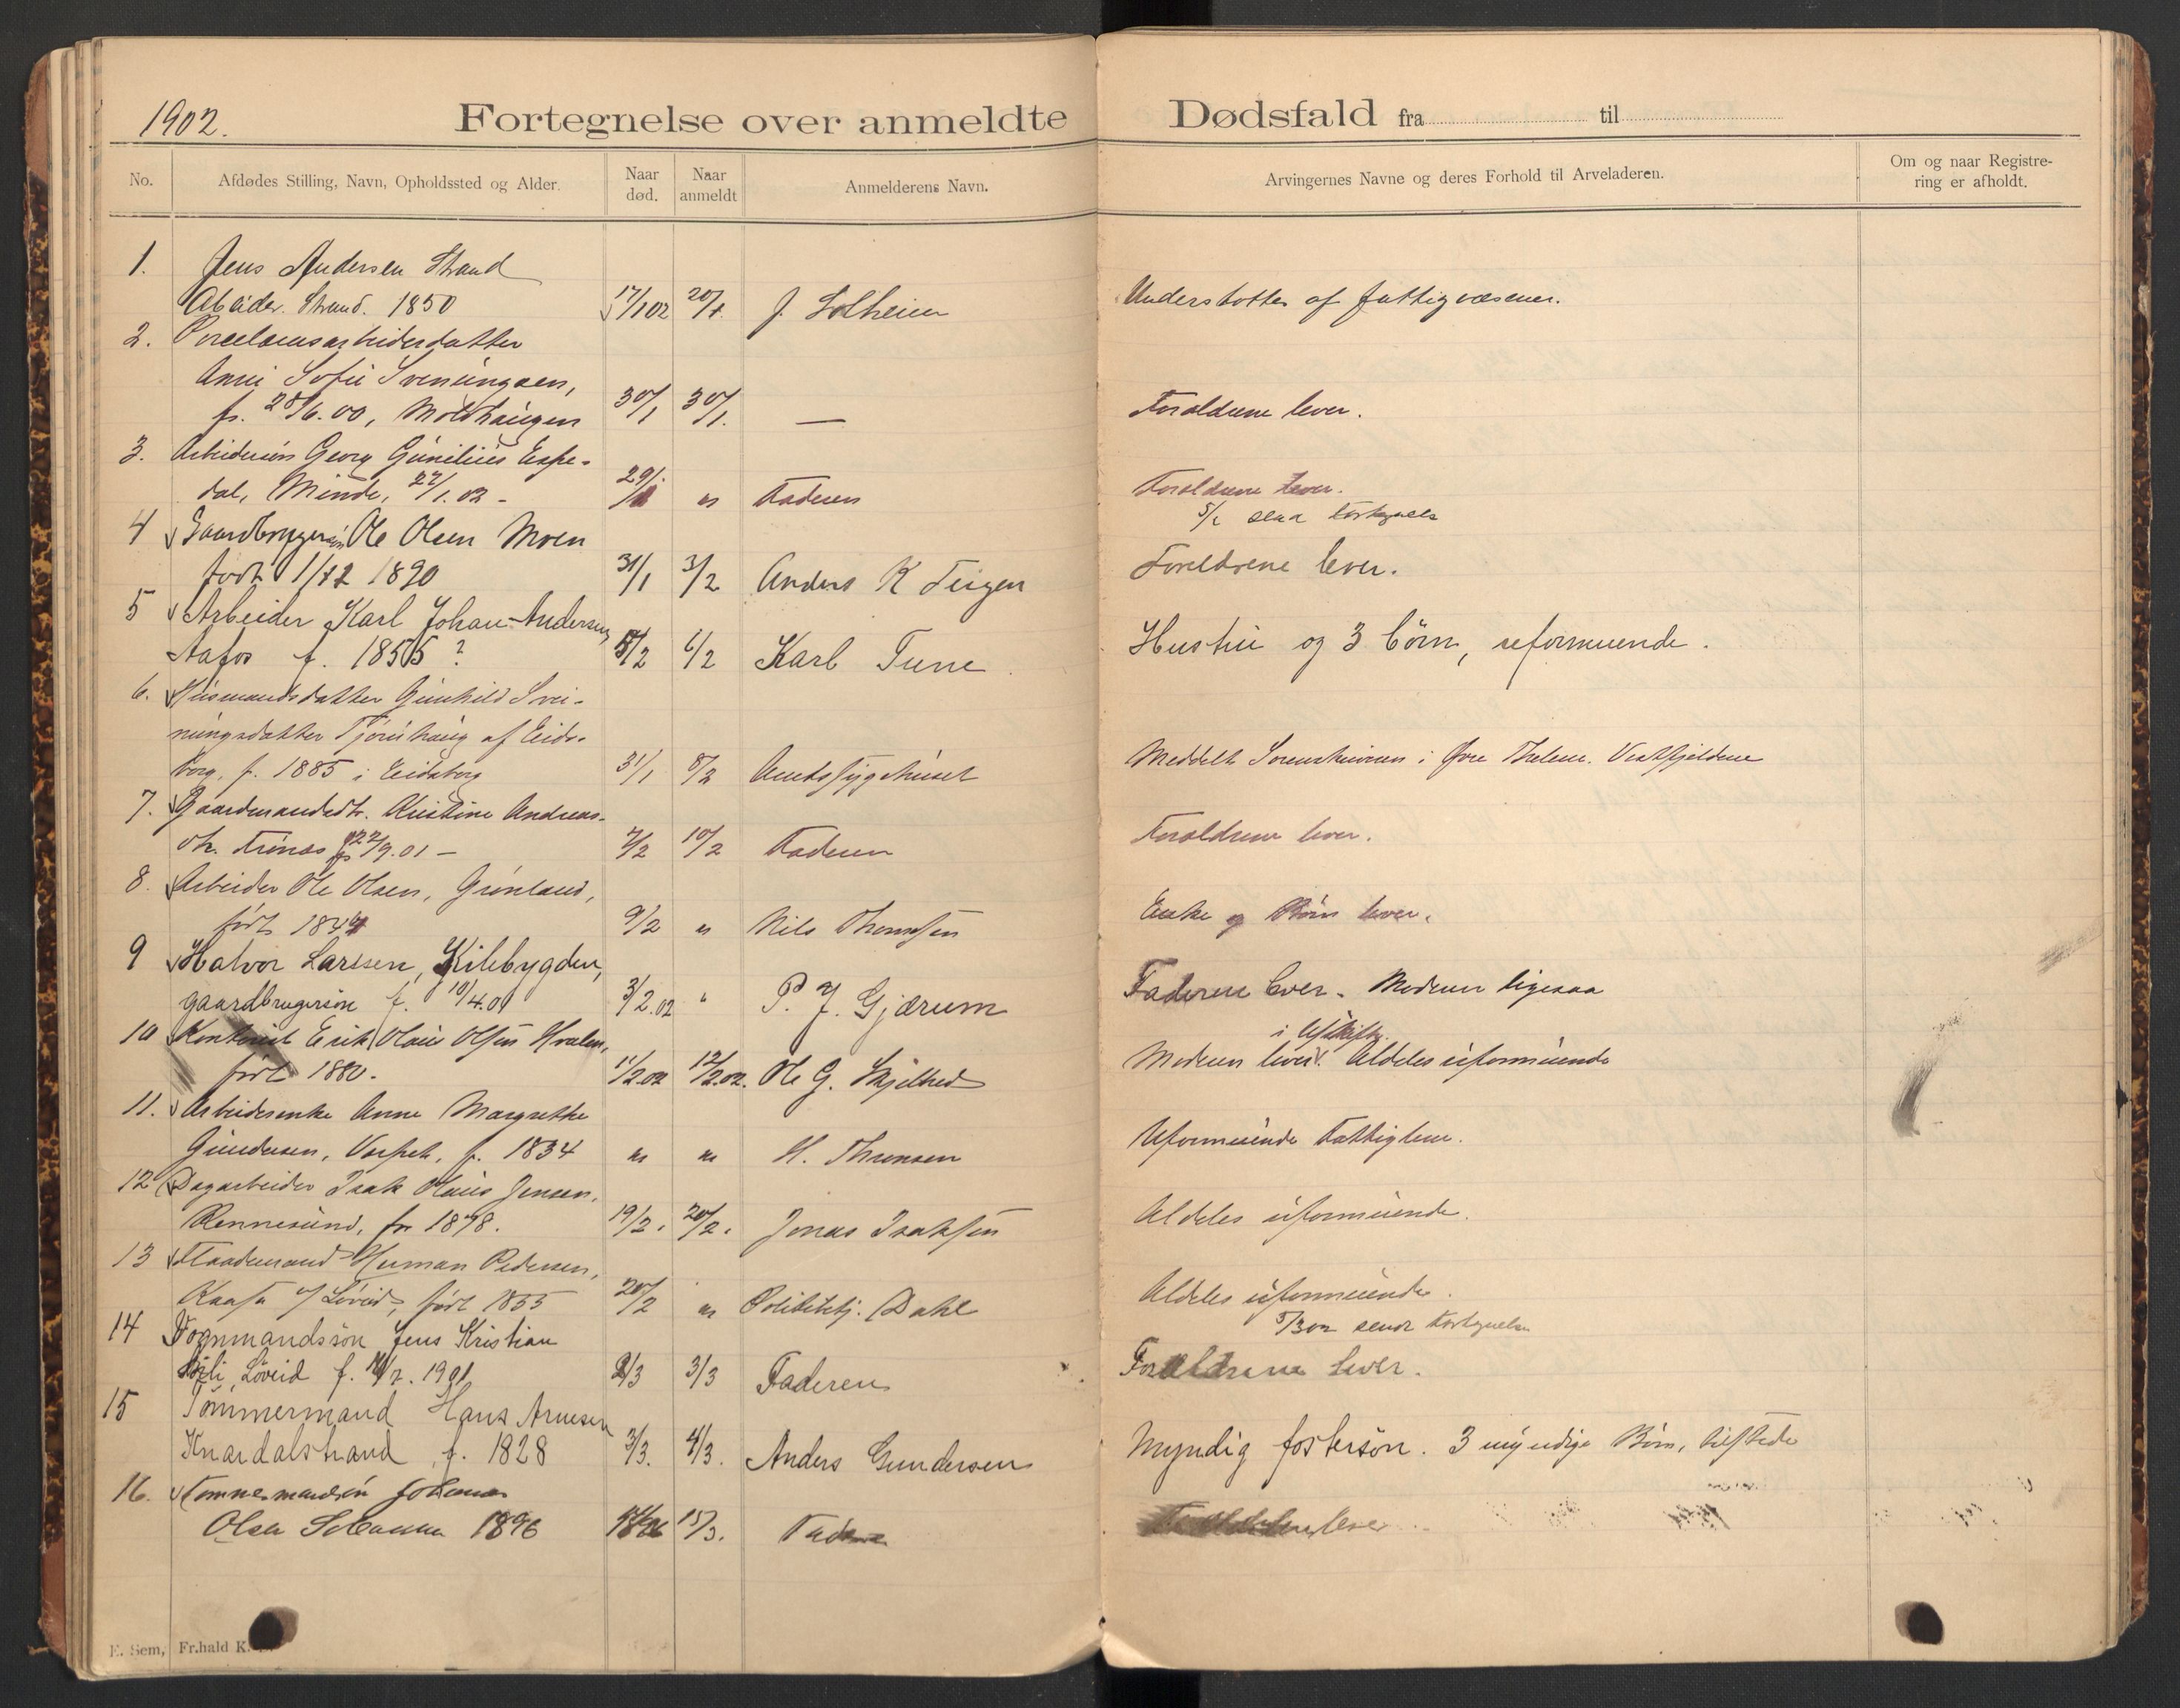 1902.
Fortegnelse over anmeldte Dødsfald fra til
No.
Afdødes Stilling, Navn, Opholdssted og Alder.
Naar død.
Naar anmeldt
Anmelderens Navn.
Arvingernes Navne og deres Forhold til Arveladeren.
Om og naar Registre-
ring er afholdt.
1. Jens Andersen Strand
Abeider. Strand. 1850 17/1 02 20/1. J. Solheim Understøttes af fattigvæsenet.
2. Porcelænsarbeiderdatter
Anne Sofie Sveningsen,
f. 28/6.00, Moldhaugen 30/1 30/1. — Forældrene lever.
3. Arbeidersøn Georg Espe-
dal, Minde, 27/1.02 - 29/1 " Faderen Forældrene lever.
4 Gaardbrugersøn Ole Olsen Moen
født 1/12 1890 31/1 3/2 Anders K Teigen Forældrene lever.
5 Arbeider Karl Johan Andersen
Aafos f. 1855? 5/2 6/2 Karl Tune Hustru og 3 börn, uformuende.
6. Husmandsdatter Gunhild Svei-
nungsdatter Tjörnhaug af Eids-
borg, f. 1885 i Eidsborg 31/1 8/2 Amtssygehuset Meddelt Sorenskriveren i Øvre Thelem. Vestfjeldene
7. Gaardmandsdt. Kristine Andreas-
dt. 22/9.01 — 7/2 10/2 Faderen Forældrene lever.
8. Arbeider Ole Olsen, Grönland,
født 1844 9/2 " Nils Thomsen Enke og Börn lever.
9 Halvor Larssen, Kilebygden,
gaardbrugersön f. 10/4.01 3/2.02 " P. J. Gjærum Faderen lever. Moderen ligesaa
i Uskifte
10 Kontorist Erik Olaus Olsen Hvalen,
født 1880. 11/2.02 12/2.02. Ole G. Skjelbred Moderen lever. Aldeles uformuende
11. Arbeiderenke Anne Margrethe
Gundersen, f. 1834 " " H. Thronsen Uformuende Fattiglem.
12 Dagarbeider Isak Olaus Jensen,
Rennesund, f. 1878. 19/2. 20/2. Jonas Isaksen Aldeles uformuende.
13 Herman Pedersen,
Løveid, født 1855 20/2 " Politibtj. Dahl Aldeles uformuende.
14 Fogmandssön Jens Kristian
Løveid f. 1901 2/3 3/3 Faderen Forældrene lever.
15 Tömmermand Hans Arnesen
Knardalstrand f. 1828 3/3. 4/3. Anders Gundersen Myndig fostersön. 3 myndige Börn, tilstede
16. Tömmermandsön Johannes
Olsen 1896 15/3. Faderen Forældrene lever
E. Sem, Fr.hald K.